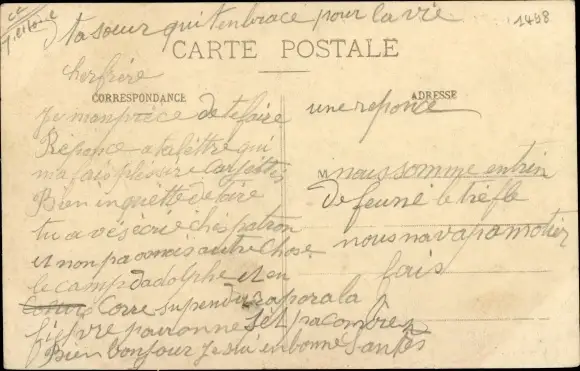 ta soeur qui tenbrace pour la vie
1488
CARTE POSTALE
cher frere
CORRESPONDANCE
ADRESSE
Je manprece de te faire
Reponce a ta lettre qui
ma fais plésire car jettez
Bien inquette de toire
tu avés écrie chés patron
et non pa otrois autre Chose
le camp dadolphe et en
Corre supendu rapora la
fievre pairronne set pa contrer
Bien bonjour Je sui en bonne Santés
une reponce
M nous somme entrin
de feuné le trefle
nous navapamotier
fais